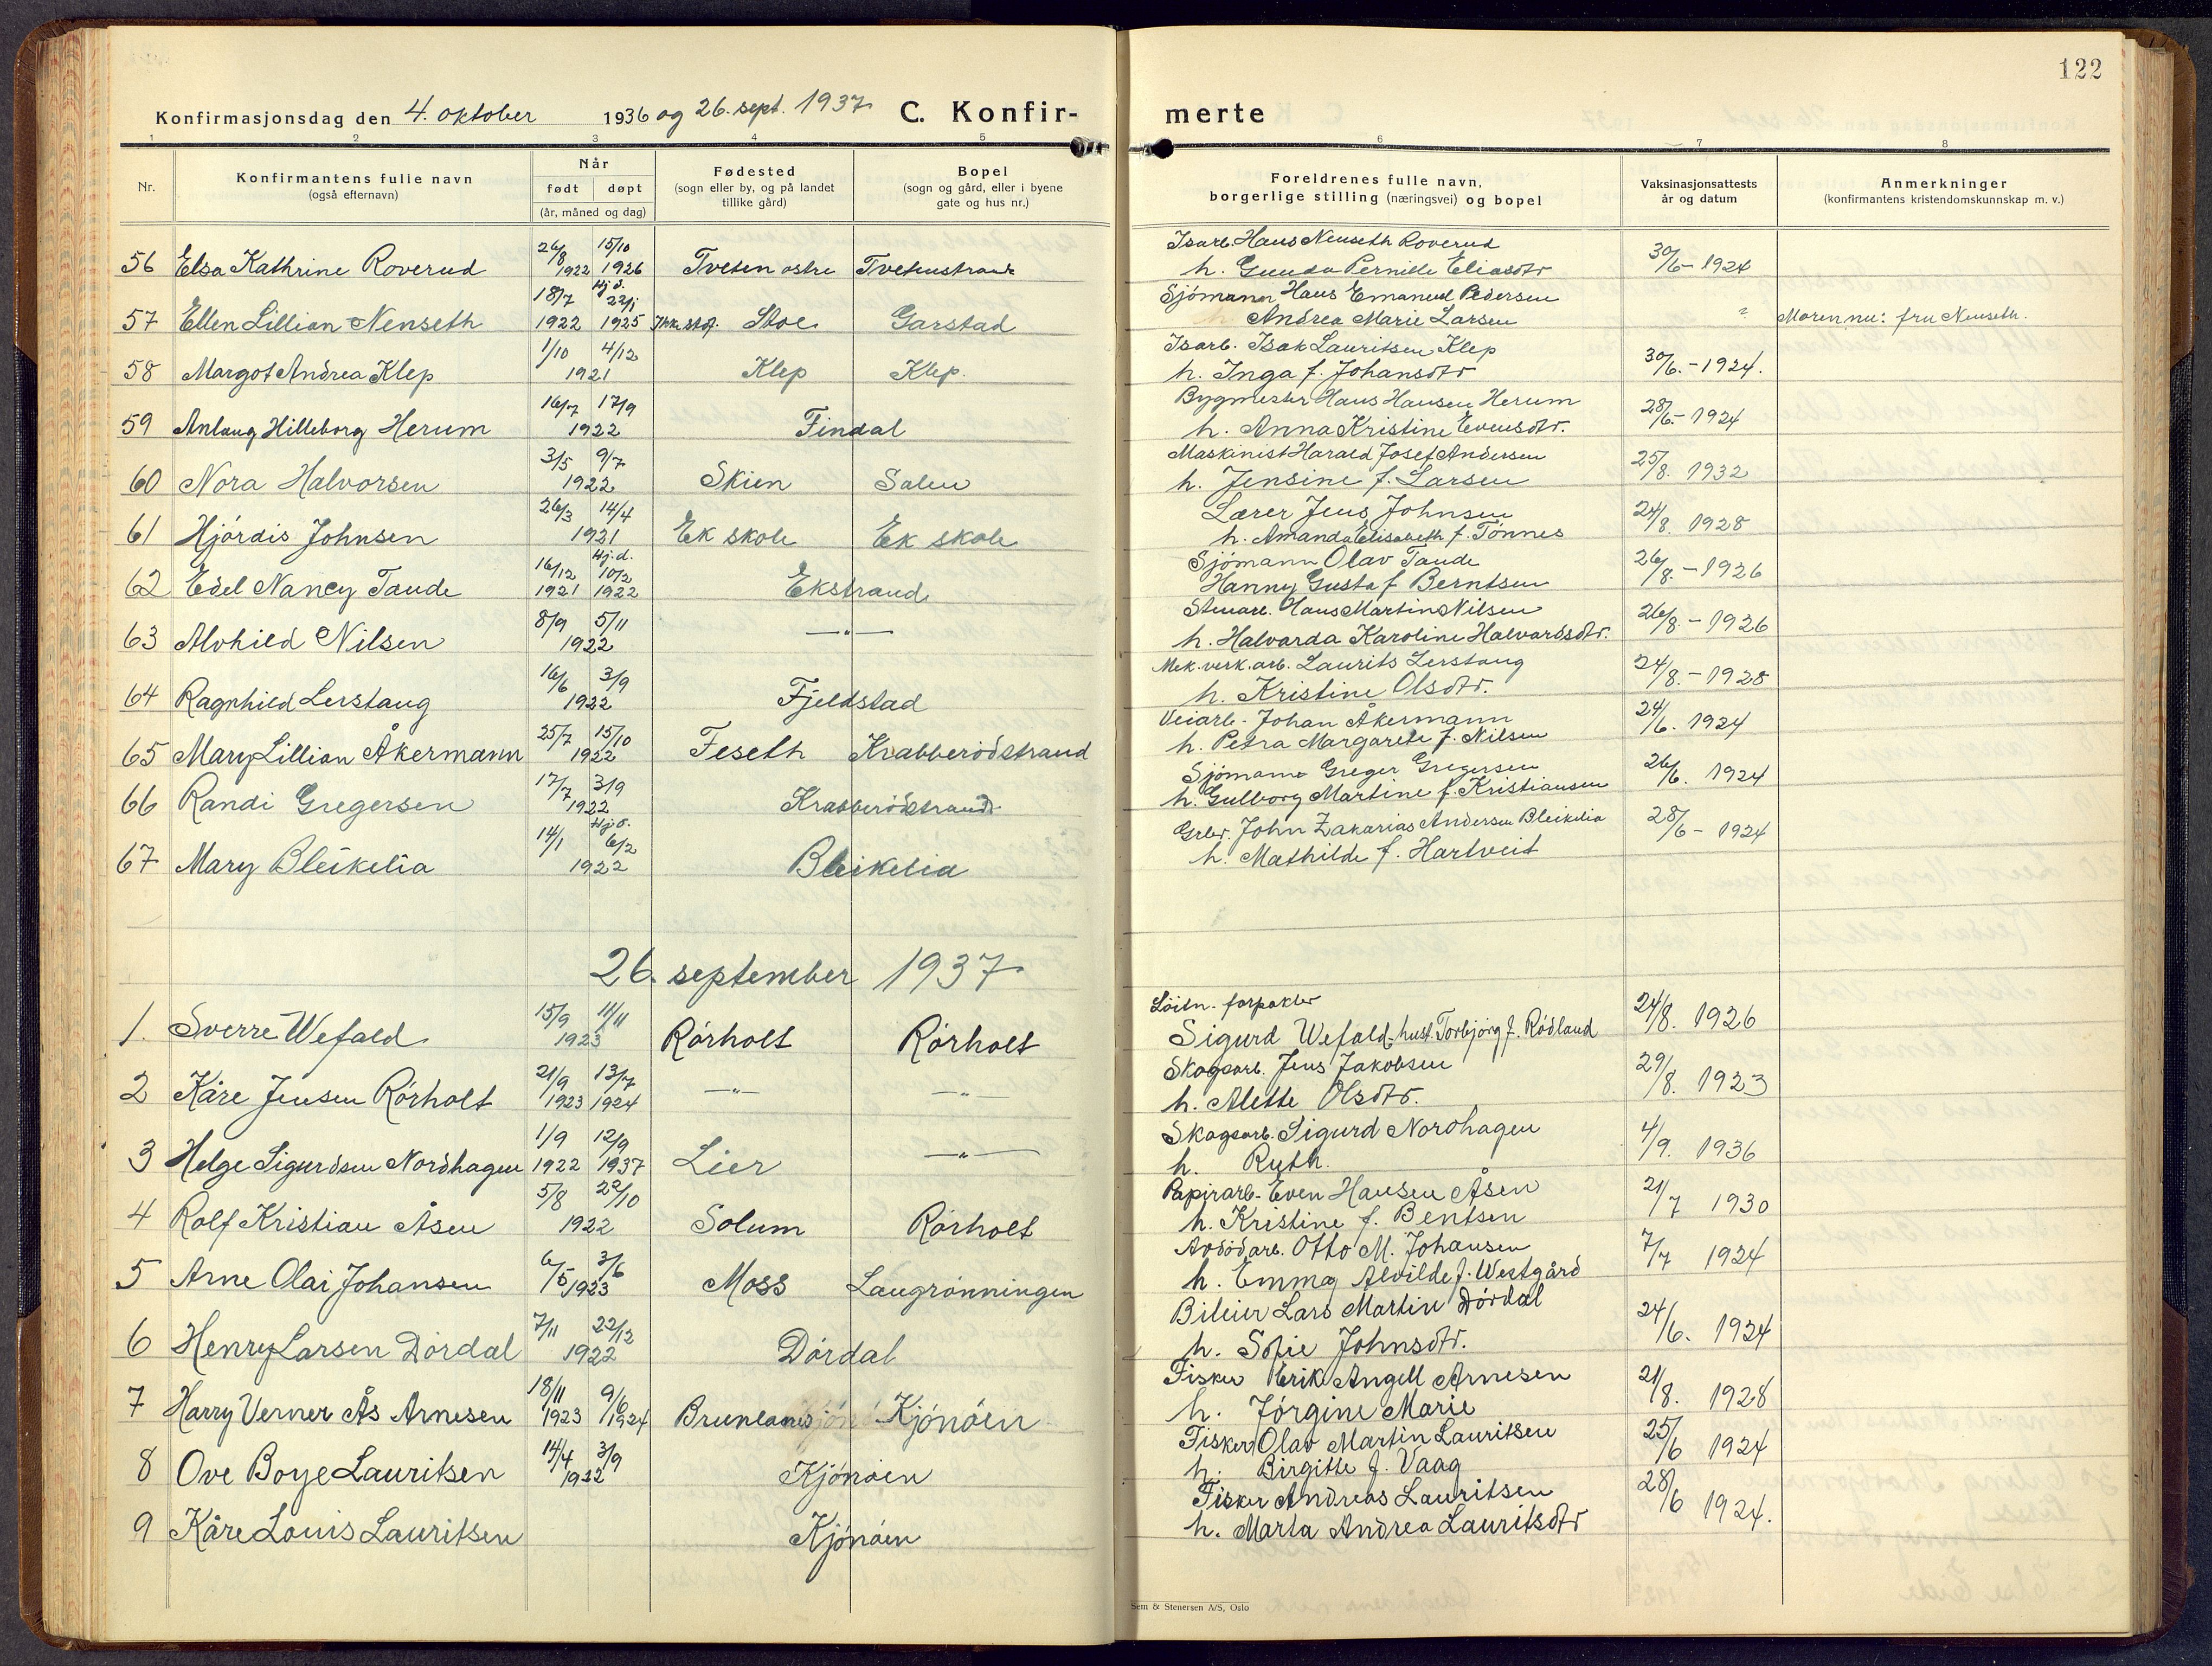 122
Konfirmasjonsdag den 4. oktober 1936 og 26. sept. 1937 C. Konfir-
merte
1 2 3 4 5 6 7 8
Nr. Konfirmantens fulle navn Når Fødested Bopel Foreldrenes fulle navn, Vaksinasjonsattests Anmerkninger
(også efternavn) født døpt (sogn eller by, og på landet (sogn og gård, eller i byene borgerlige stilling (næringsvei) og bopel år og datum (konfirmantens kristendomskunnskap m. v.)
(år, måned og dag) tillike gård) gate og hus nr.)
26/8 15/10 Isarb. Hans Nenseth Roverud
56 Elsa Kathrine Roverud 1922 1926 Tveten østre Tvetenstrand h. Gunda Pernille Eliasdtr 30/6 - 1924
18/7 Hj.d. 22/1 Sjömann Hans Emanuel Pedersen
57 Ellen Lillian Nenseth 1922 1925 Stoe Garstad Andrea Marie Larsen " Moren nu: fru Nenseth.
1/10 4/12 Isarb. Isak Lauritsen Klep
58 Margot Andrea Klep 1921 Klep Klep. h. Inga f. Johansdtr 30/6. - 1924.
16/7 17/9 Bygmester Hans Hansen Herum
59 Anlaug Hilleborg Herum 1922 Findal h. Anna Kristine Evensdtr. 28/6. - 1924
3/5 9/7 Maskinist Harald Josef Andersen
60 Nora Halvorsen 1922 Skien Salen h. Jensine f. Larsen 25/8. 1932
26/3 14/4 Lærer Jens Johnsen
61 Hjördis Johnsen 1921 Ek skole Ek skole h. Amanda Elisabeth f. Tönnes 24/8. 1928
16/12 Hj.d. 10/2 Sjömann Olav Taude
62 Edel Nancy Taude 1921 1922 Ekstrand Hanny Gusta f Berntsen 26/8. - 1926
8/9 5/11 Stuearb. Hans Martin Nilsen
63 Alvhild Nilsen 1922 —"— h. Halvarda Karoline Halvardsdtr. 26/8 - 1926
16/6 3/9 Mek. verk. arb. Laurits Lerstang
64 Ragnhild Lerstang 1922 Fjeldstad h. Kristine Olsdtr. 24/8. - 1928
25/7 15/10 Veiarb. Johan Åkermann
65 Mary Lillian Åkermann 1922 Feseth Krabberödstrand h. Petra Margarete f. Nilsen 24/6. 1924
17/7 3/9 Sjömann Greger Gregersen
66 Randi Gregersen 1922 Krabberödstrand h. Gulborg Martine f. Kristiansen 26/6. 1924
14/1 Hj.d. 6/2 Grbr. John Zakarias Andersen Bleikelia
67 Mary Bleikelia 1922 Bleikelia h. Mathilde f. Hartveit 28/6 - 1924
26. september 1937
15/9 11/11 Löitn. forpakter
1. Sverre Wefald 1923 Rörholt Rörholt Sigurd Wefald - hust. Torbjörg f. Rödland 24/8. 1926
21/9 13/7 Skogsarb. Jens Jakobsen
2 Kåre Jensen Rörholt 1923 1924 —"— —"— h. Alette Olsdtr. 29/8. 1923
1/9 12/9 Skogsarb. Sigurd Nordhagen
3 Helge Sigurdsen Nordhagen 1922 1937 Lier —"— h. Ruth. 4/9. 1936
5/8 22/10 Papirarb. Even Hansen Åsen
4 Rolf Kristian Åsen 1922 Solum Rörholt h. Kristine f. Bentsen 21/7 1930
6/5 3/6 Otto M. Johansen
5 Arne Olai Johansen 1923 Moss Laugrönningen h. Emma Alvilde f. Westgård 7/7 1924
7/11 22/12 Bileier Lars Martin Dördal
6 Henry Larsen Dördal 1922 Dördal h. Sofie Johnsdtr. 24/6. 1924
18/11 9/6 Fisker Erik Angell Arnesen
7 Harry Verner Ås Arnesen 1923 1924 Brunlanes Kjönöen h. Jörgine Marie 21/8. 1928
14/4 3/9 Fisker Olav Martin Lauritsen
8 Ove Boye Lauritsen 1922 Kjönöen h. Birgitte f. Vaag 25/6 1924
Fisker Andreas Lauritsen
9 Kåre Louis Lauritsen Kjönöen h. Marta Andrea Lauritsdtr 28/6 1924.
Sem & Stenersen A/S, Oslo